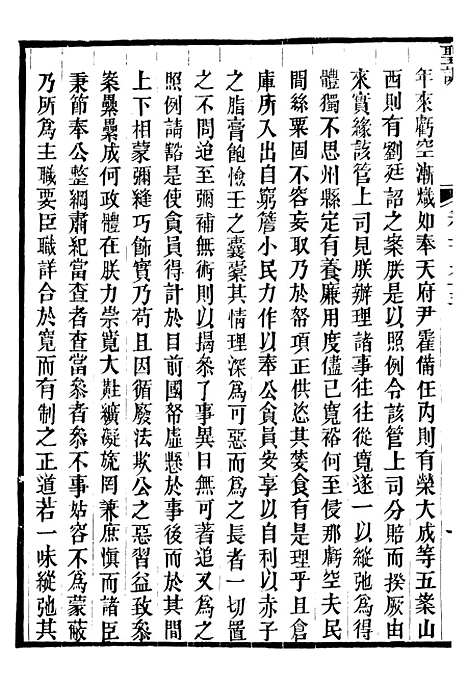 年來虧空漸熾如奉天府尹霍備任內則有榮大成等五案山
西則有劉廷詔之案朕是以照例令該管上司分賠而揆厥由
來實緣該管上司見朕辦理諸事往往從寬遂一以縱弛為得
體獨不思州縣定有養廉用度儘已寬裕何至侵那虧空夫民
間絲粟固不容妄取乃於帑項正供恣其蠶食有是理乎且倉
庫所入出自窮簷小民力作以奉公貪員安享以自利以赤子
之脂膏飽憸壬之囊橐其情理深為可惡而為之長者一切置
之不問迨至彌補無術則以揭參了事異日無可著追又為之
照例請豁是使貪員得計於目前國帑虛懸於事後而於其間
上下相蒙彌縫巧飾實乃苟且因循廢法欺公之惡習益致參
案纍纍成何政體在朕力崇寬大黈纊礙旒罔兼庶慎而諸臣
秉節奉公整綱肅紀當查者查當參者參不事姑容不為蒙蔽
乃所為主職要臣職詳合於寬而有制之正道若一味縱弛其